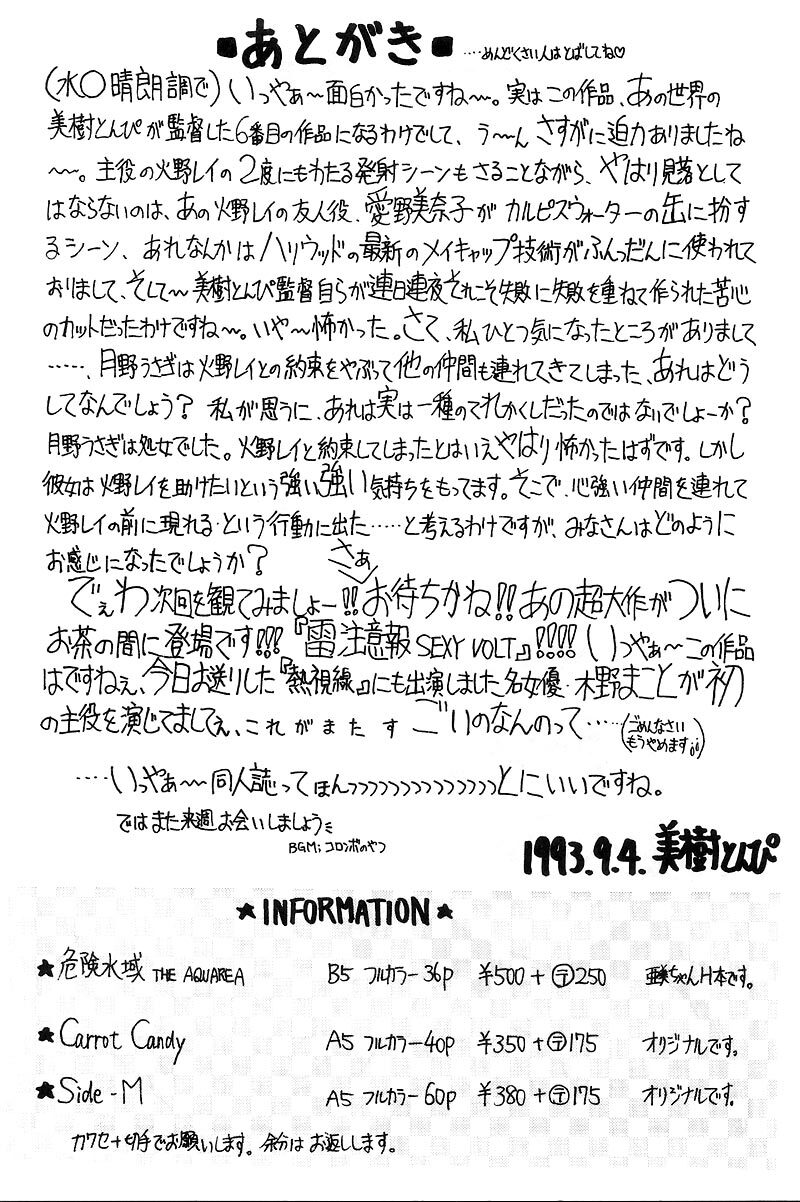 ■あとがき■ ‥‥めんどくさい人はとばしてね♡
(水○晴朗調で)いっやぁ〜面白かったですね〜。実はこの作品、あの世界の
美樹とんぴが監督した6番目の作品になるわけでして、う〜ん さすがに迫力ありましたね
〜〜。主役の火野レイの2度にもわたる発射シーンもさることながら、やはり見落として
はならないのは、あの火野レイの友人役、愛野美奈子がカルピスウォーターの缶に扮す
るシーン、あれなんかはハリウッドの最新のメイキャップ技術がふんだんに使われて
おりまして、そして〜美樹とんぴ監督自らが連日連夜それこそ失敗に失敗を重ねて作られた苦心
のカットだったわけですね〜。いや〜怖かった。さて、私ひとつ気になったところがありまして
‥‥‥、月野うさぎは火野レイとの約束をやぶって他の仲間も連れてきてしまった、あれはどう
してなんでしょう? 私が思うに、あれは実は一種のてれかくしだったのではないでしょーか?
月野うさぎは処女でした。火野レイと約束してしまったとはいえやはり怖かったはずです。しかし
彼女は火野レイを助けたいという強い強い気持ちをもってます。そこで、心強い仲間を連れて
火野レイの前に現れる・という行動に出た‥‥‥と考えるわけですが、みなさんはどのように
お感じになったでしょうか?
さぁ
でぇわ次回を観てみましょー!!お待ちかね!!あの超大作がついに
お茶の間に登場です!!!『雷注意報SEXY VOLT』!!!!いっやぁ〜この作品
はですねぇ、今日お送りした『熱視線』にも出演しました名女優・木野まことが初
の主役を演じてましてぇ、これがまたす ごいのなんのって‥‥‥(ごめんなさい
もうやめます;;)
‥‥いっやぁ〜〜同人誌ってほんっっっっっっっっっっっっっとにいいですね。
ではまた来週お会いしましょう
BGM;コロンボのやつ
1993.9.4.美樹とんぴ
★INFORMATION★
★危険水域 THE AQUAREA B5 フルカラー36p ¥500+〒250 亜美ちゃんH本です。
★Carrot Candy A5 フルカラー40p ¥350+〒175 オリジナルです。
★Side-M A5 フルカラー60p ¥380+〒175 オリジナルです。
カワセ+切手でお願いします。余分はお返しします。